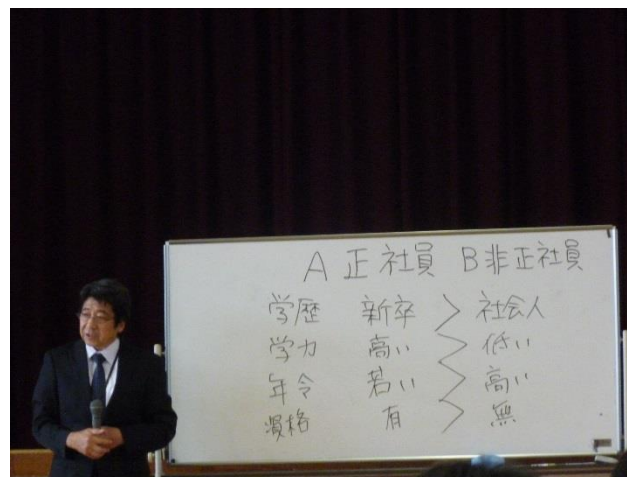 A 正社員 B 非正社員
学歴 新卒 > 社会人
学力 高い > 低い
年令 若い > 高い
資格 有 > 無